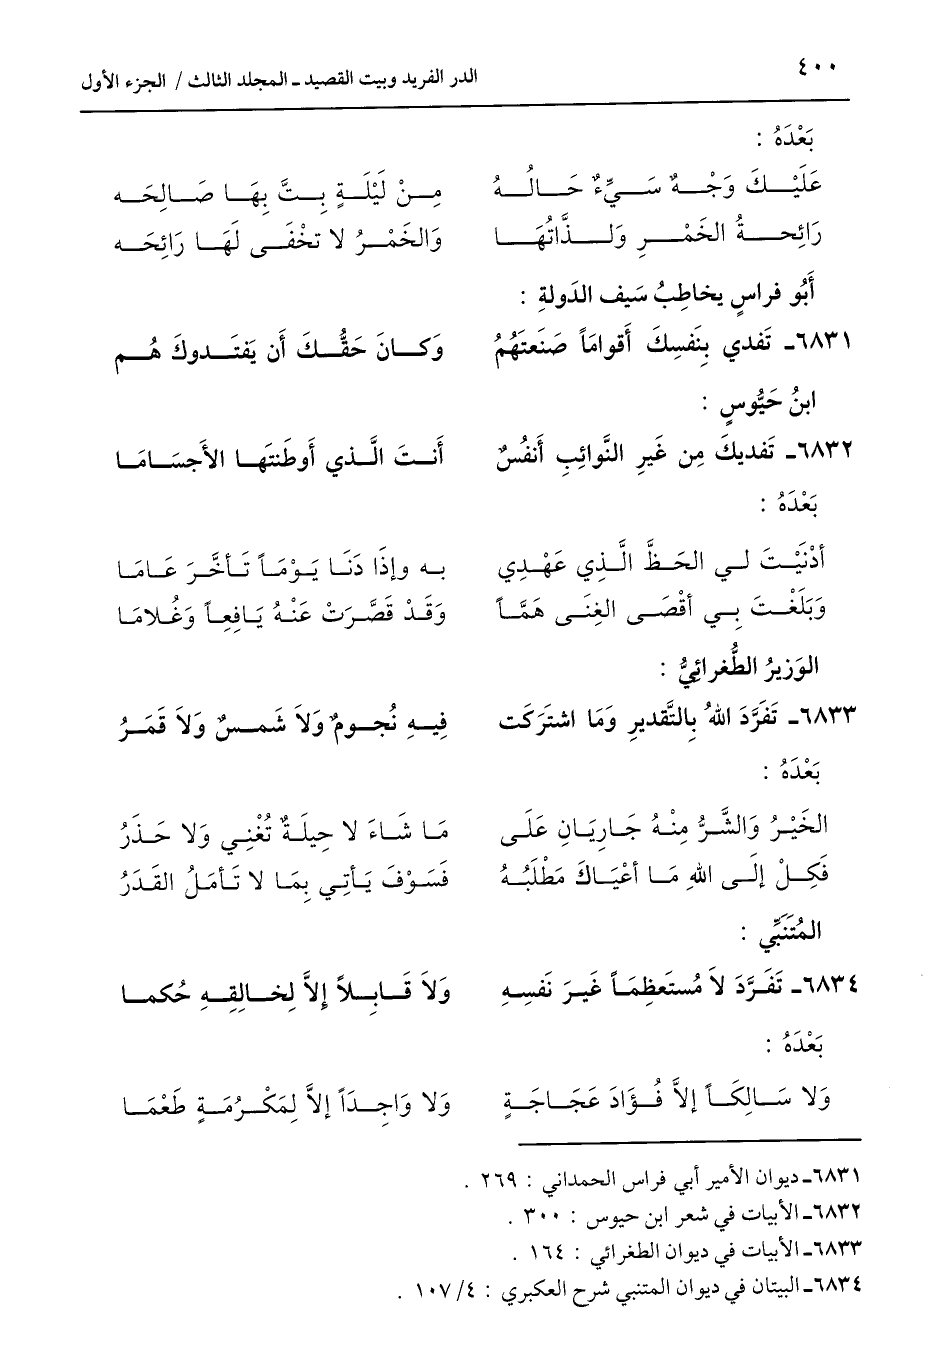 ٤٠٠
الدر الفريد وبيت القصيد - المجلد الثالث / الجزء الأول
بَعْدَهُ :
عَلَيْكَ وَجْهٌ سَيِّءٌ حَالُهُ مِنْ لَيْلَةٍ بِتَّ بِهَا صَالِحَه
رَائِحةُ الخَمْرِ وَلذَّاتُهَا وَالخَمْرُ لا تخْفَى لَهَا رَائِحَه
أَبُو فراسٍ يخاطِبُ سَيف الدَولةِ :
٦٨٣١- تَفدي بِنَفسِكَ أقوامَاً صَنَعتَهُمُ وَكانَ حَقُّكَ أن يَفتَدوكَ هُم
ابنُ حَيُّوسٍ :
٦٨٣٢- تَفديكَ مِن غَيرِ النَّوائِبِ أَنفُسٌ أَنتَ الَّذي أَوطَنتَها الأَجسَامَا
بَعْدَهُ :
أدْنَيْتَ لي الحَظَّ الَّذِي عَهْدِي بِه وإذَا دَنَا يَوْمَاً تَأخَّرَ عَامَا
وَبَلَغْتَ بِي أقْصَى الغِنَى هَمَّاً وَقَدْ قَصَّرَتْ عَنْهُ يَافِعاً وَغُلامَا
الوَزيرُ الطُّغرائِيُّ :
٦٨٣٣- تَفَرَّدَ اللهُ بِالتَّقديرِ وَمَا اشتَرَكَت فِيهِ نُجومٌ وَلاَ شَمسٌ وَلاَ قَمَرُ
بَعْدَهُ :
الخَيْرُ وَالشَّرُّ مِنْهُ جَارِيَانِ عَلَى مَا شَاءَ لا حِيلَةٌ تُغْنِي وَلا حَذَرُ
فَكِلْ إلَى اللهِ مَا أعْيَاكَ مَطْلَبُهُ فَسَوْفَ يَأتِي بِمَا لا تَأمَلُ القَدَرُ
المُتَنَبِّي :
٦٨٣٤- تَفَرَّدَ لاَ مُستَعظِمَاً غَيرَ نَفسِهِ وَلاَ قَابِلاً إلاَّ لِخالِقِهِ حُكما
بَعْدَهُ :
وَلا سَالِكَاً إلاَّ فُؤَادَ عَجَاجَةٍ وَلا وَاجِدَاً إلاَّ لِمَكْرُمَةٍ طَعْمَا
٦٨٣١- ديوان الأمير أبي فراس الحمداني : ٢٦٩ .
٦٨٣٢- الأبيات في شعر ابن حيوس : ٣٠٠ .
٦٨٣٣- الأبيات في ديوان الطغرائي : ١٦٤ .
٦٨٣٤- البيتان في ديوان المتنبي شرح العكبري : ٤/ ١٠٧ .